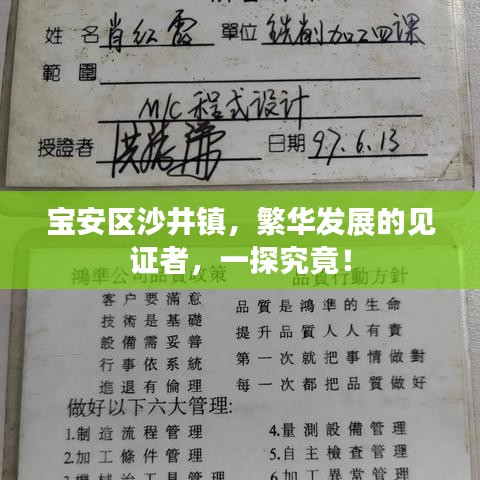 姓名 肖红霞 單位 銑削加工四課
範圍
M/C 程式设计
授證者 日期 97.6.13
宝安区沙井镇,繁华发展的见
证者,一探究竟!
鴻準公司品質政策 品質行動方針
客戶要滿意 品質是鴻準的生命
技術是基礎 提升品質人人有責
設備需妥善 第一次就把事情做對
行事依系統 每一次都把品質做好
進退有倫理
做好以下六大管理:
1.制造流程管理 4.量測設備管理
2.加工條件管理 5.自主檢查管理
3.機械治工具管理 6.加工異常管理